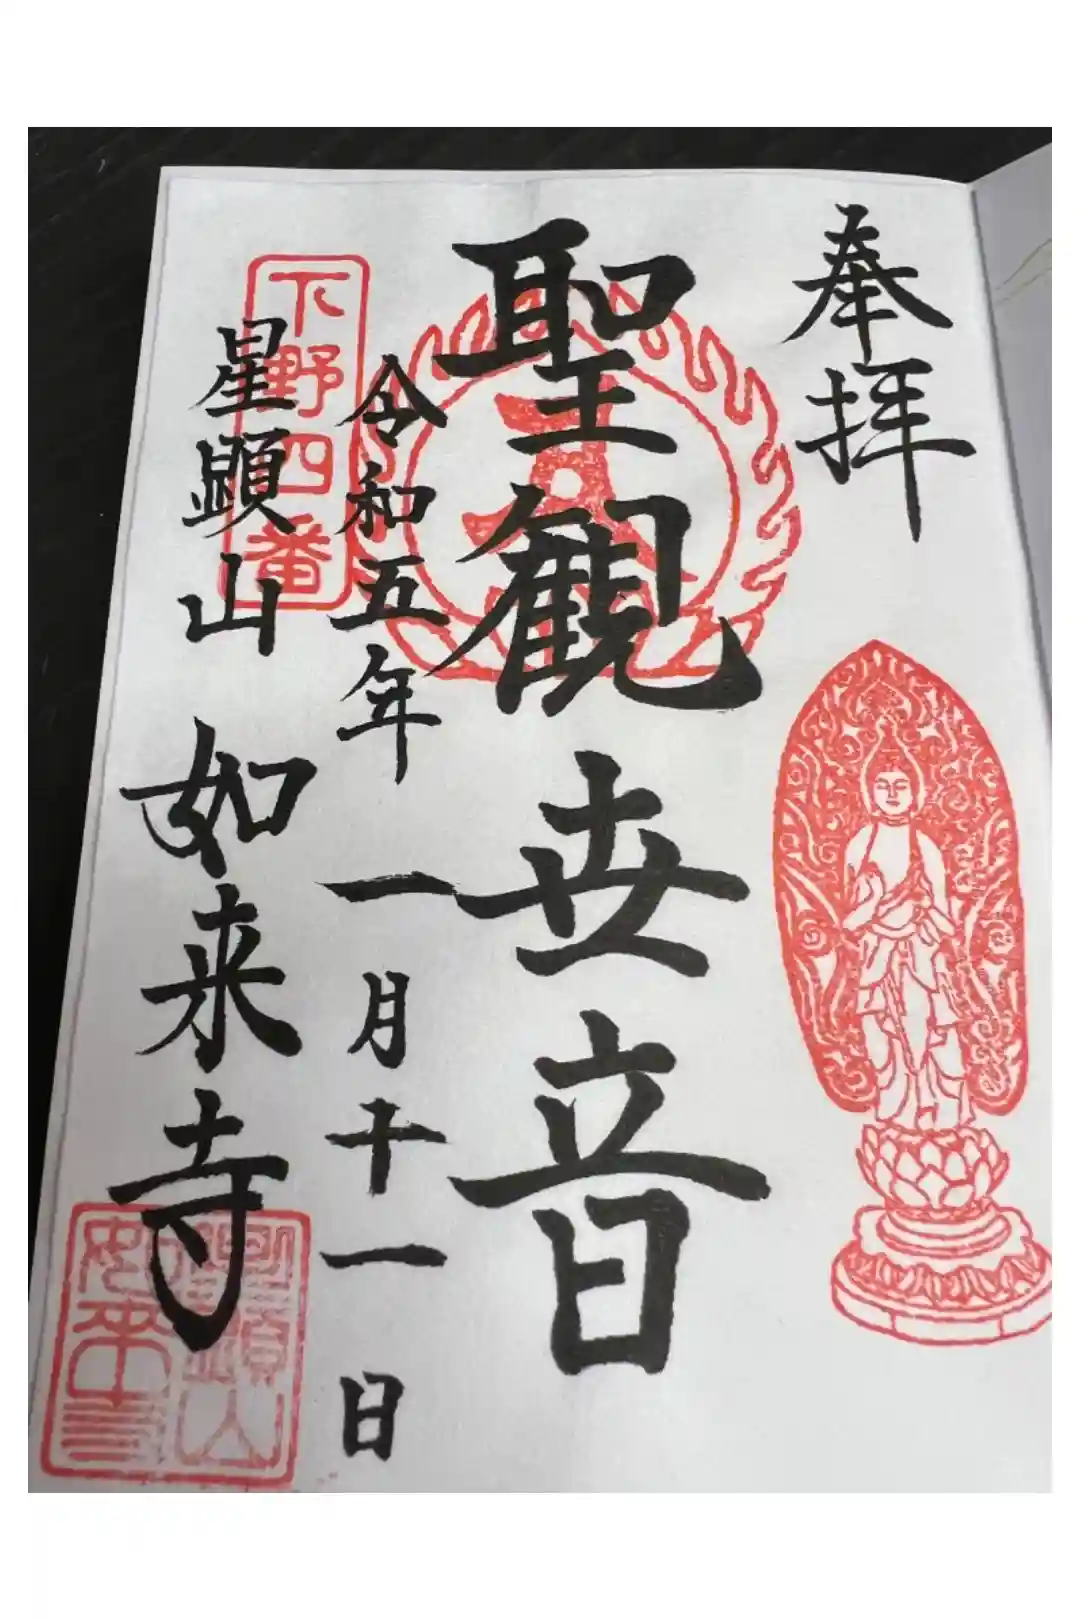 奉拝
聖観世音
令和五年一月十一日
下野四番
星顕山 如来寺